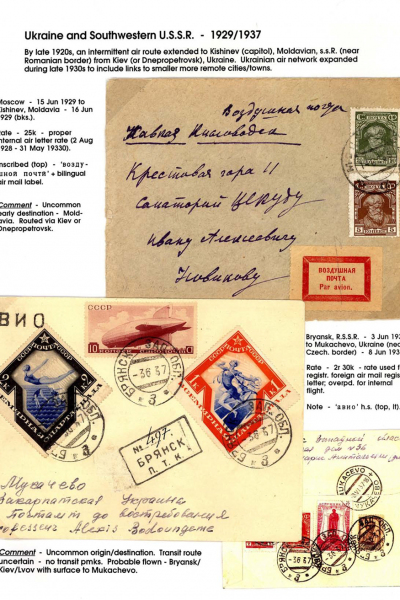 Ukraine and Southwestern U.S.S.R. - 1929/1937
By late 1920s, an intermittent air route extended to Kishinev (capitol), Moldavian, s.s.R. (near
Romanian border) from Kiev (or Dnepropetrovsk), Ukraine. Ukrainian air network expanded
during late 1930s to include links to smaller more remote cities/towns.
Moscow - 15 Jun 1929 to
Kishinev, Moldavia - 16 Jun
1929 (bks.).
Rate - 25k - proper
internal air letter rate (2 Aug
1928 - 31 May 19330).
Inscribed (top) - "возду-
шной почт" + bilingual
air mail label.
Comment - Uncommon
early destination - Mold-
avia. Routed via Kiev or
Dnepropetrovsk.
Воздушная почта
Кисловодск
Крестовая гора 11
Санаторий ЦЕКУБУ
Ивану Алексеевичу
Новикову
ВОЗДУШНАЯ
ПОЧТА
Par avion.
АВИО
СССР
10 КОП 10
ПОЧТА СССР
2К
СПАРТАКИАДА
ПОЧТА СССР
1К К1
СПАРТАКИАДА
БРЯНСК ЗАП. ОБЛ.
-3 6 37
№ 497
БРЯНСК
П. Т. К.
Мукачево
Закарпатская Украина
Почтамт до востребования
Professeur Alexis
Bryansk, R.S.S.R. - 3 Jun 1937
to Mukachevo, Ukraine (near
Czech. border) - 8 Jun 1937
Rate - 2r 30k - rate used for
registr. foreign air mail regist.
letter; overpd. for internal
flight.
Note - "авио" h.s. (top, lt).
MUKAČEVO
Comment - Uncommon origin/destination. Transit route
uncertain - no transit pmks. Probable flown - Bryansk/
Kiev/Lvov with surface to Mukachevo.